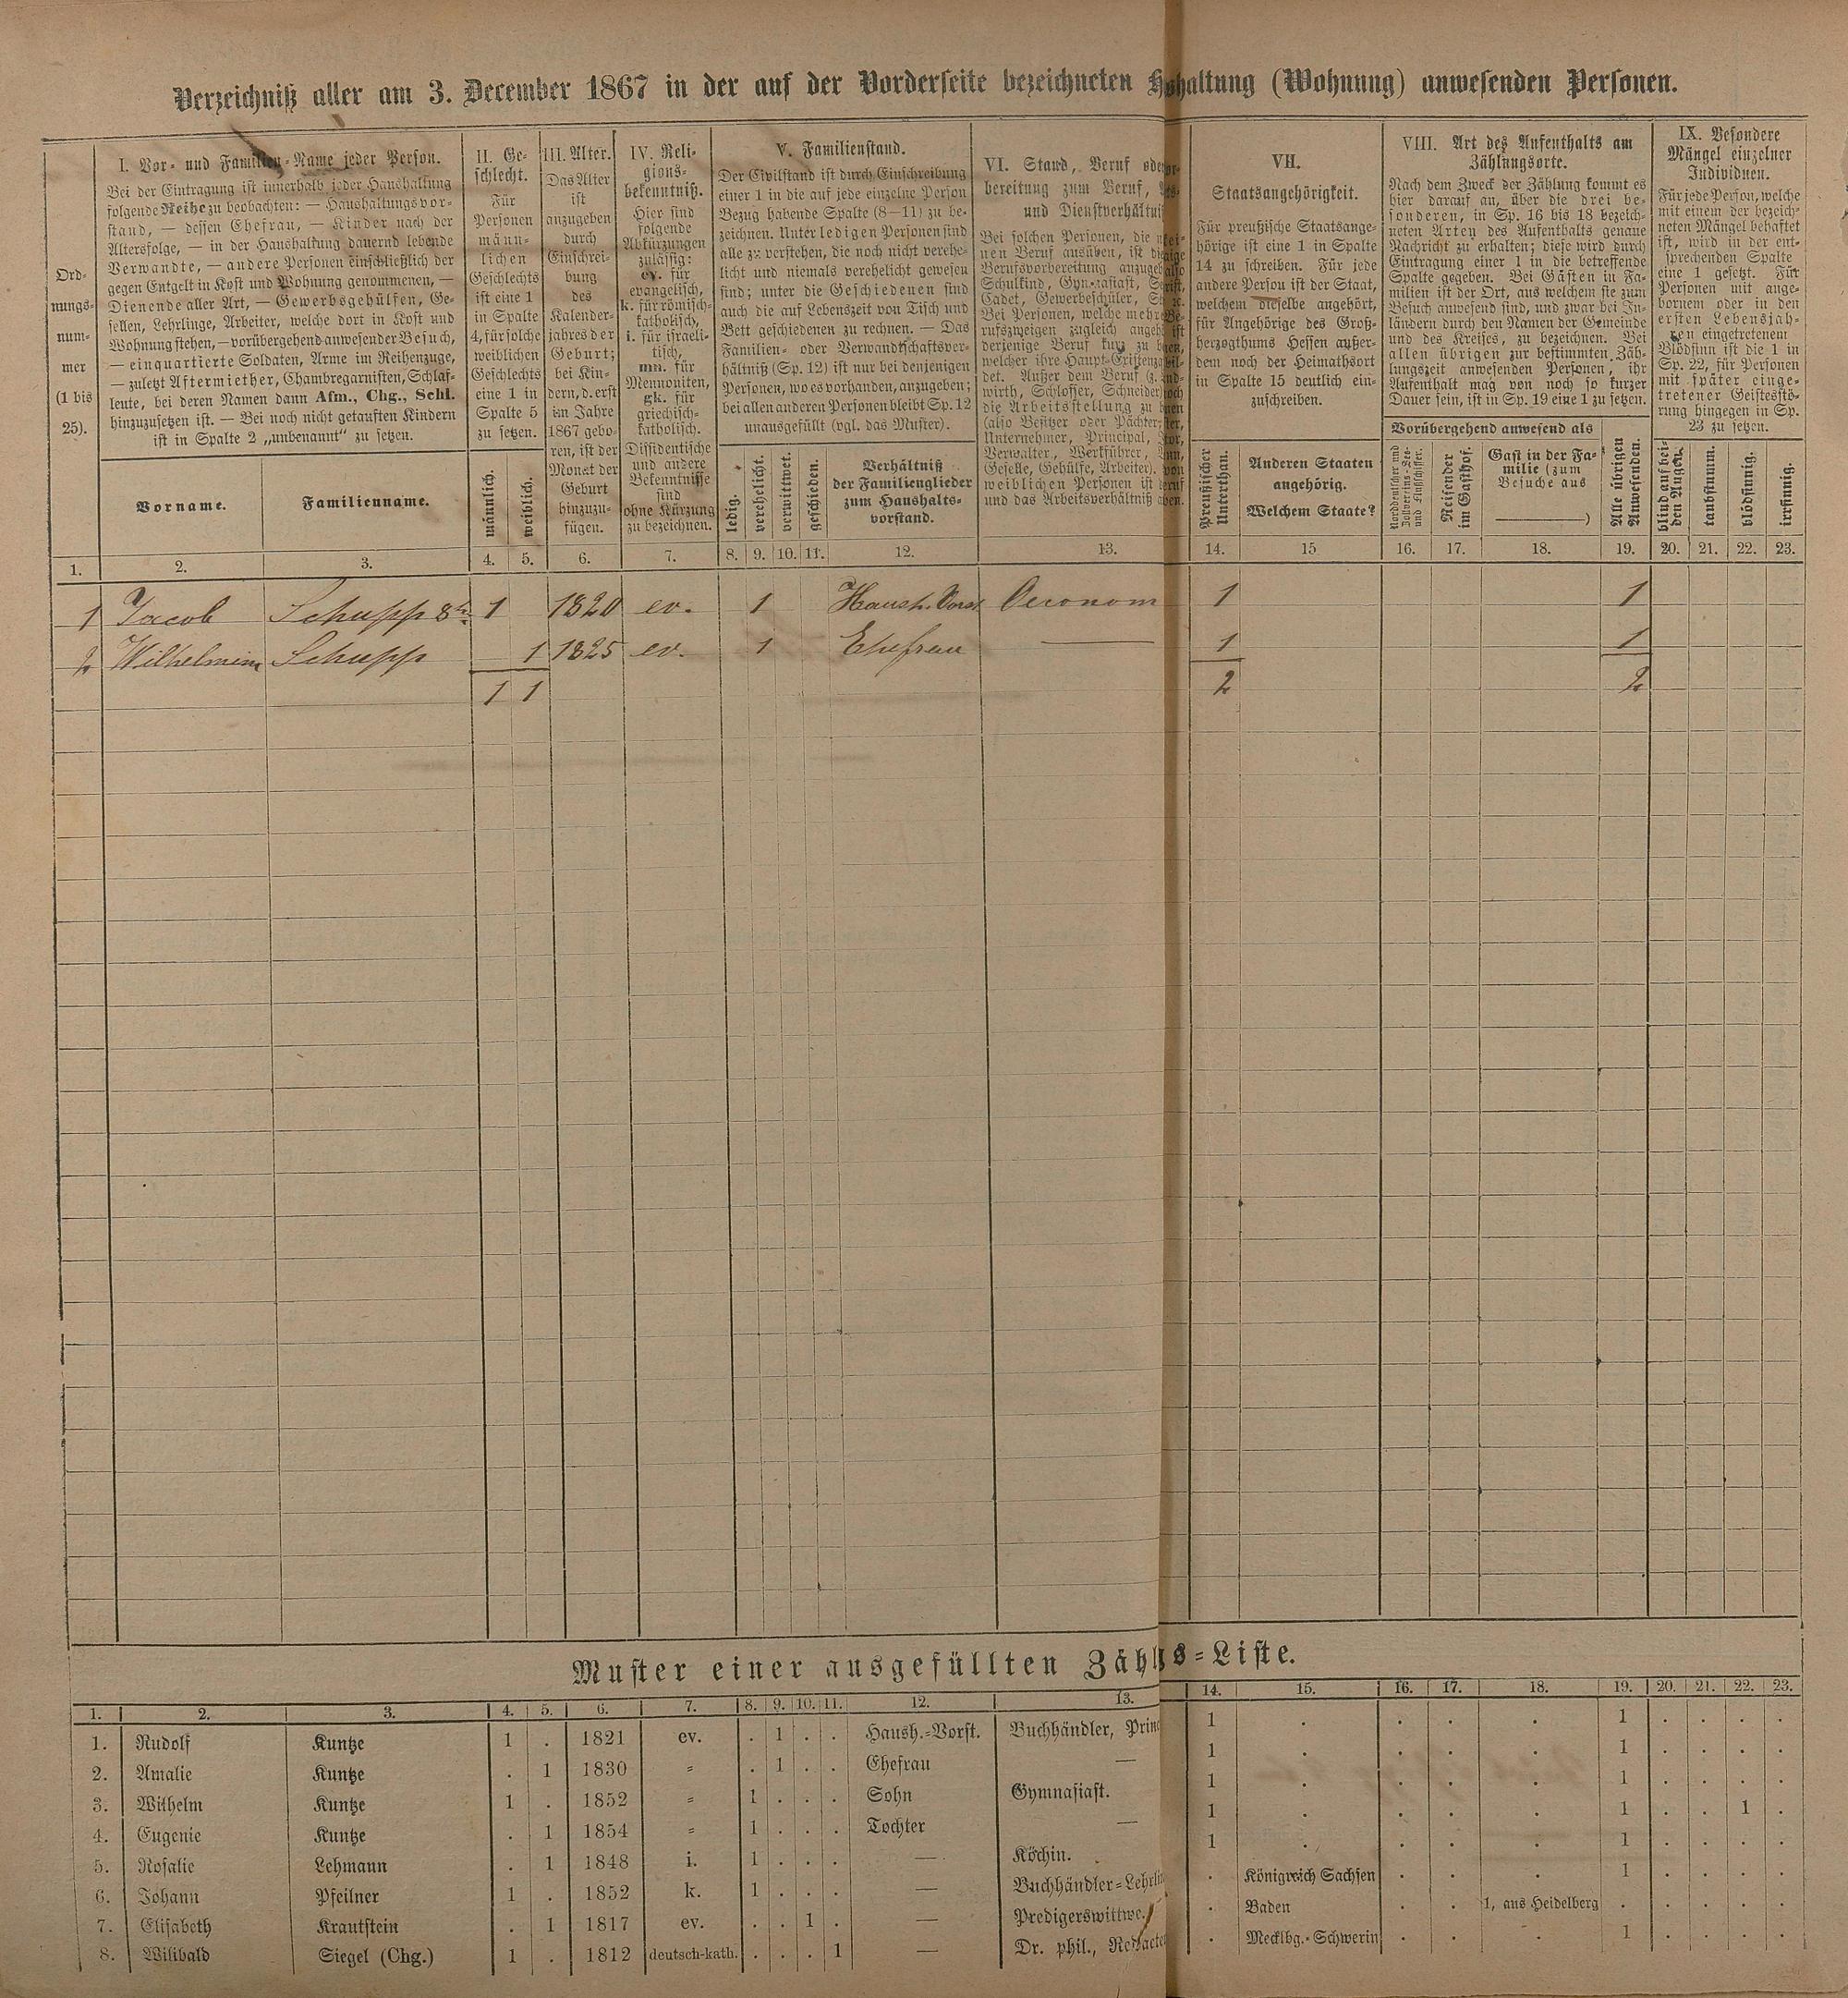 Verzeichniß aller am 3. December 1867 in der auf der Vorderseite bezeichneten haltung (Wohnung) anwesenden Personen.
Ord-
nungs-
num-
mer
(1 bis
25).
I. Vor- und Familien-Name jeder Person.
Bei der Eintragung ist innerhalb jeder Haushaltung
folgende Reihe zu beobachten: — Haushaltungsvor-
stand, — dessen Ehefrau, — Kinder nach der
Altersfolge, — in der Haushaltung dauernd lebende
Verwandte, — andere Personen einschließlich der
gegen Entgelt in Kost und Wohnung genommenen, —
Dienende aller Art, — Gewerbsgehülfen, Ge-
sellen, Lehrlinge, Arbeiter, welche dort in Kost und
Wohnung stehen, — vorübergehend anwesender Besuch,
— einquartierte Soldaten, Arme im Reihenzuge,
— zuletzt Aftermiether, Chambregarnisten, Schlaf-
leute, bei deren Namen dann Afm., Chg., Schl.
hinzuzusetzen ist. — Bei noch nicht getauften Kindern
ist in Spalte 2 „unbenannt“ zu setzen.
Vorname.
Familienname.
II. Ge-
schlecht.
Für
Personen
männ-
lichen
Geschlechts
ist eine 1
in Spalte
4, für solche
weiblichen
Geschlechts
eine 1 in
Spalte 5
zu setzen.
männlich.
weiblich.
III. Alter.
Das Alter
ist
anzugeben
durch
Einschrei-
bung
des
Kalender-
jahres der
Geburt;
bei Kin-
dern, d. erst
im Jahre
1867 gebo-
ren, ist der
Monat der
Geburt
hinzuzu-
fügen.
IV. Reli-
gions-
bekenntniß.
Hier sind
folgende
Abkürzungen
zulässig:
ev. für
evangelisch,
k. für römisch-
katholisch,
i. für israeli-
tisch,
mn. für
Mennoniten,
gk. für
griechisch-
katholisch.
Dissidentische
und andere
Bekenntnisse
sind
ohne Kürzung
zu bezeichnen.
V. Familienstand.
Der Civilstand ist durch Einschreibung
einer 1 in die auf jede einzelne Person
Bezug habende Spalte (8—11) zu be-
zeichnen. Unter ledigen Personen sind
alle zu verstehen, die noch nicht verehe-
licht und niemals verehelicht gewesen
sind; unter die Geschiedenen sind
auch die auf Lebenszeit von Tisch und
Bett geschiedenen zu rechnen. — Das
Familien- oder Verwandtschaftsver-
hältniß (Sp. 12) ist nur bei denjenigen
Personen, wo es vorhanden, anzugeben;
bei allen anderen Personen bleibt Sp. 12
unausgefüllt (vgl. das Muster).
ledig.
verehelicht.
verwittwet.
geschieden.
Verhältniß
der Familienglieder
zum Haushalts-
vorstand.
VI. Stand, Beruf oder
bereitung zum Beruf,
und Dienstverhältni
Bei solchen Personen, die
nen Beruf ausüben, ist die
Berufsvorbereitung anzugeb
Schulkind, Gymnasiast,
Cadet, Gewerbeschüler,
Bei Personen, welche mehre
rufszweigen zugleich angeh
derjenige Beruf kurz zu
welcher ihre Haupt-Existenz
det. Außer dem Beruf (z.
wirth, Schlosser, Schneider)
die Arbeitsstellung zu
(also Besitzer oder Pächter,
Unternehmer, Principal,
Verwalter, Werkführer,
Geselle, Gehülfe, Arbeiter).
weiblichen Personen ist
und das Arbeitsverhältniß
VII.
Staatsangehörigkeit.
Für preußische Staatsange-
hörige ist eine 1 in Spalte
14 zu schreiben. Für jede
andere Person ist der Staat,
welchem dieselbe angehört,
für Angehörige des Groß-
herzogthums Hessen außer-
dem noch der Heimathsort
in Spalte 15 deutlich ein-
zuschreiben.
Preußischer
Unterthan.
Anderen Staaten
angehörig.
Welchem Staate?
VIII. Art des Aufenthalts am
Zählungsorte.
Nach dem Zweck der Zählung kommt es
hier darauf an, über die drei be-
sonderen, in Sp. 16 bis 18 bezeich-
neten Arten des Aufenthalts genaue
Nachricht zu erhalten; diese wird durch
Eintragung einer 1 in die betreffende
Spalte gegeben. Bei Gästen in Fa-
milien ist der Ort, aus welchem sie zum
Besuch anwesend sind, und zwar bei In-
ländern durch den Namen der Gemeinde
und des Kreises, zu bezeichnen. Bei
allen übrigen zur bestimmten Zäh-
lungszeit anwesenden Personen, ihr
Aufenthalt mag von noch so kurzer
Dauer sein, ist in Sp. 19 eine 1 zu setzen.
Vorübergehend anwesend als
Norddeutscher und
Zollvereins-See-
und Flußschiffer.
Reisender
im Gasthof.
Gast in der Fa-
milie (zum
Besuche aus
————)
Alle übrigen
Anwesenden.
IX. Besondere
Mängel einzelner
Individuen.
Für jede Person, welche
mit einem der bezeich-
neten Mängel behaftet
ist, wird in der ent-
sprechenden Spalte
eine 1 gesetzt. Für
Personen mit ange-
bornem oder in den
ersten Lebensjah-
ren eingetretenem
Blödsinn ist die 1 in
Sp. 22, für Personen
mit später einge-
tretener Geistesstö-
rung hingegen in Sp.
23 zu setzen.
blind auf bei-
den Augen.
taubstumm.
blödsinnig.
irrsinnig.
1. 2. 3. 4. 5. 6. 7. 8. 9. 10. 11. 12. 13. 14. 15 16. 17. 18. 19. 20. 21. 22. 23.
1 Jacob Schupp 8t 1 1820 ev. 1 Haush. Vorst Oeconom 1 1
2 Wilhelmine Schupp 1 1825 ev. 1 Ehefrau — 1 1
1 1 2 2
Muster einer ausgefüllten Zähl s-Liste.
1. 2. 3. 4. 5. 6. 7. 8. 9. 10. 11. 12. 13. 14. 15. 16. 17. 18. 19. 20. 21. 22. 23.
1. Rudolf Kuntze 1 . 1821 ev. . 1 . . Haush.-Vorst. Buchhändler, Prin 1 . . . . 1 . . . .
2. Amalie Kuntze . 1 1830 „ . 1 . . Ehefrau — 1 . . . . 1 . . . .
3. Wilhelm Kuntze 1 . 1852 „ 1 . . . Sohn Gymnasiast. 1 . . . . 1 . . . .
4. Eugenie Kuntze . 1 1854 „ 1 . . . Tochter — 1 . . . . 1 . . 1 .
5. Rosalie Lehmann . 1 1848 i. 1 . . . — Köchin. 1 . . . . 1 . . . .
6. Johann Pfeilner 1 . 1852 k. 1 . . . — Buchhändler-Lehrlin . Königreich Sachsen . . . 1 . . . .
7. Elisabeth Krautstein . 1 1817 ev. . . 1 . — Predigerswittwe. . Baden . . 1, aus Heidelberg . . . . .
8. Wilibald Siegel (Chg.) 1 . 1812 deutsch-kath. . . . 1 — Dr. phil., Redacte . Mecklbg.-Schwerin . . . 1 . . . .